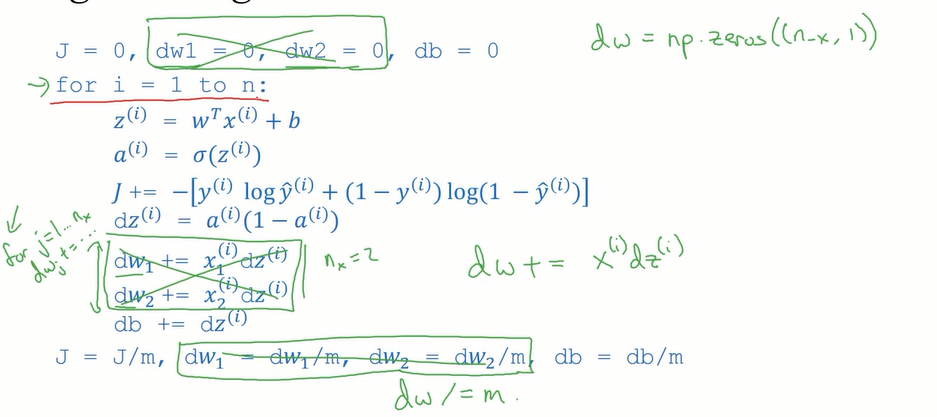 J = 0, dw1 = 0, dw2 = 0, db = 0
dw = np.zeros((n-x, 1))
→ for i = 1 to n:
z⁽ⁱ⁾ = wᵀx⁽ⁱ⁾ + b
a⁽ⁱ⁾ = σ(z⁽ⁱ⁾)
J += −[y⁽ⁱ⁾ log ŷ⁽ⁱ⁾ + (1 − y⁽ⁱ⁾) log(1 − ŷ⁽ⁱ⁾)]
dz⁽ⁱ⁾ = a⁽ⁱ⁾(1 − a⁽ⁱ⁾)
for j=1...nₓ
dwⱼ += ...
dw₁ += x₁⁽ⁱ⁾ dz⁽ⁱ⁾
dw₂ += x₂⁽ⁱ⁾ dz⁽ⁱ⁾
nₓ = 2
dw += x⁽ⁱ⁾dz⁽ⁱ⁾
db += dz⁽ⁱ⁾
J = J/m, dw₁ = dw₁/m, dw₂ = dw₂/m, db = db/m
dw /= m.